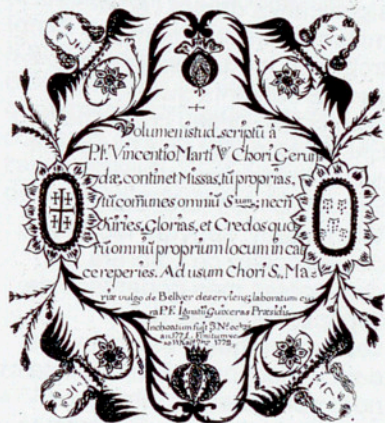 Volumen istud, scriptũ â
P.F. Vincentio Marti V Chori Gerun
dæ, continet Missas, tũ proprias,
tũ com̃unes omniũ Sum; necñ
Kiries, Glorias, et Credos quo
rũ omniũ proprium locum in cal
ce reperies. Ad usum Chori S. Ma=
riæ vulgo de Bellver deserviens; laboratum cu
ra P.F. Ignatii Guixeras Præsidis.
Inchoatum fuit